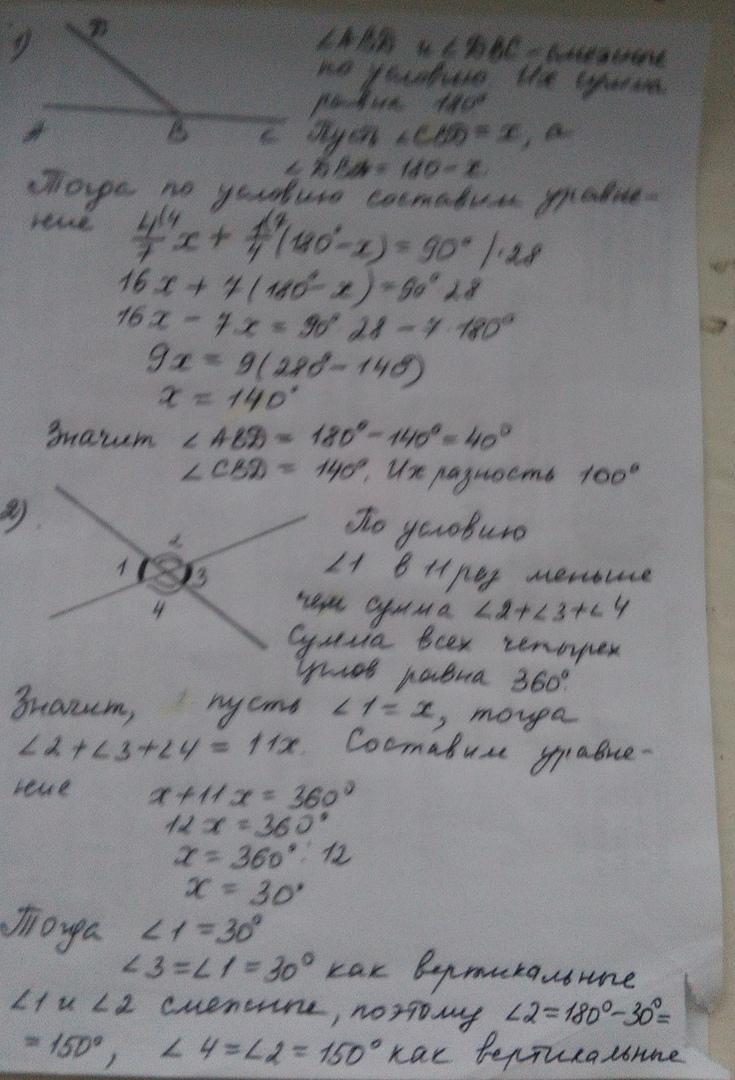 1)
D
A B C
∠ABD и ∠DBC - смежные
по условию Их сумма
равна 180°
Пусть ∠CBD = x, а
∠DBA = 180 - x.
Тогда по условию составим уравне-
ние
4/7 \4 x + 1/4 \7 (180° - x) = 90° | · 28
16x + 7(180° - x) = 90° 28
16x - 7x = 90° 28 - 7 · 180°
9x = 9(280 - 140)
x = 140°
Значит ∠ABD = 180° - 140° = 40°
∠CBD = 140°. Их разность 100°
2)
2
1 3
4
По условию
∠1 в 11 раз меньше
чем сумма ∠2+∠3+∠4
Сумма всех четырех
углов равна 360°.
Значит, пусть ∠1 = x, тогда
∠2+∠3+∠4 = 11x. Составим уравне-
ние
x + 11x = 360°
12x = 360°
x = 360° : 12
x = 30°
Тогда ∠1 = 30°
∠3 = ∠1 = 30° как вертикальные
∠1 и ∠2 смежные, поэтому ∠2 = 180° - 30° =
= 150°, ∠4 = ∠2 = 150° как вертикальные